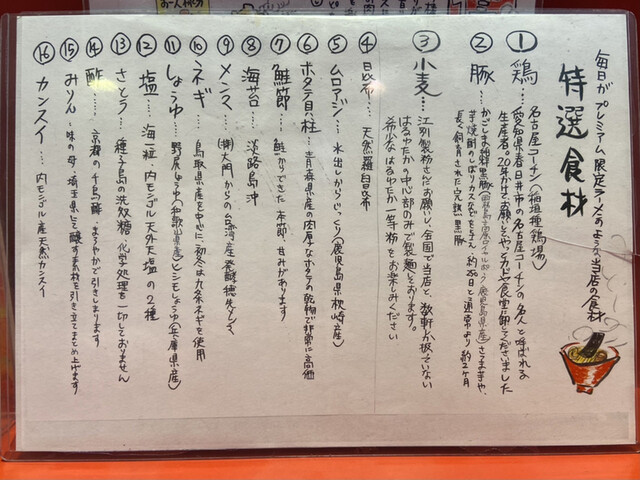 毎日がプレミアム限定ラーメンのような当店の食材
特選食材
① 鶏… 名古屋コーチン(稲垣種鶏場)
愛知県春日井市の名古屋コーチンの名人と呼ばれる
生産者。20年かけてお願いしやっとカド食堂に卸してくださいました
② 豚… かごしま純粋黒豚(鹿児島県産)さつまいもや、
芋焼酎のしぼりカスなどを与え 約250日と通常より約2ヶ月
長く飼育された完熟黒豚
③ 小麦… 江別製粉さんにお願いし、全国で当店と、数軒か扱っていない
はるゆたかの中心部のみで製麺しております。
希少なはるゆたか一等粉をお楽しみください
④ 昆布… 天然羅臼昆布
⑤ ムロアジ… 水出しからじっくり(鹿児島県枕崎産)
⑥ ホタテ貝柱… 青森県産の肉厚なホタテの乾物で非常に高価
⑦ 鮭節… 鮭からできた本節、甘味があります
⑧ 海苔… 淡路島沖
⑨ メンマ… (株)大門からの台湾産発酵穂先メンマ
⑩ ネギ… 鳥取県産を中心に初冬は九条ネギを使用
⑪ しょうゆ… 野尻しょうゆ(和歌山県産)とミモしょうゆ(兵庫県産)
⑫ 塩… 海一粒、内モンゴル天外天塩の2種
⑬ さとう… 種子島の洗双糖 化学処理を一切しておりません
⑭ 酢… 京都の千鳥酢、まろやかで引きしまります
⑮ みりん… 味の母、埼玉県にて醸す素材を引き立てまとめ上げます
⑯ カンスイ… 内モンゴル産天然カンスイ